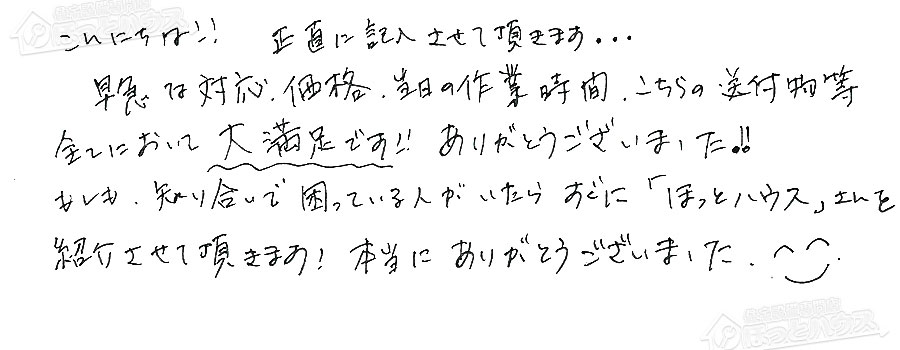 こんにちは!! 正直に記入させて頂きます...
早急な対応、価格、当日の作業時間、こちらの送付物等
全てにおいて大満足です!! ありがとうございました!!
もしも、知り合いで困っている人がいたらすぐに「ほっとハウス」さんを
紹介させて頂きます! 本当にありがとうございました.
ほっとハウス